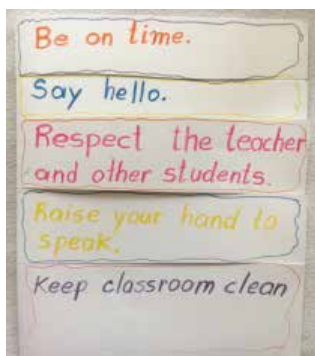 Be on time.
Say hello.
Respect the teacher
and other students.
Raise your hand to
speak.
Keep classroom clean